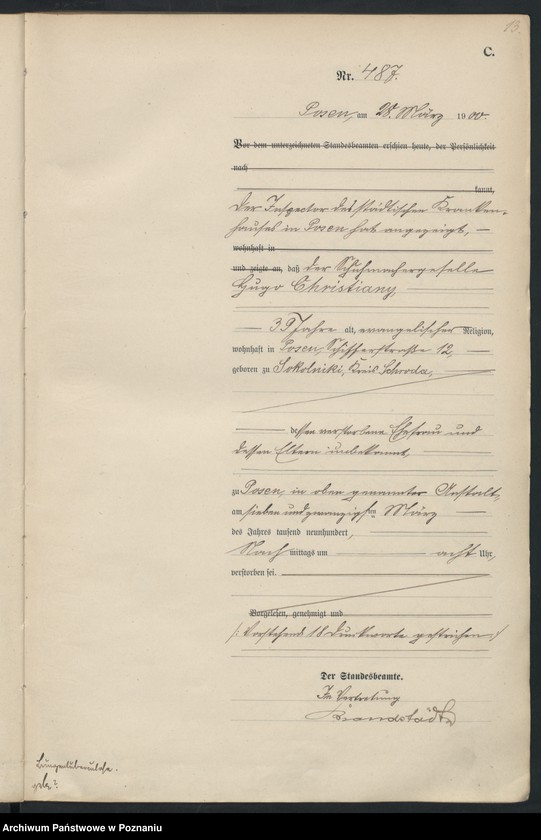 13.
C.
Nr. 487.
Posen, am 28. März 1900.
Vor dem unterzeichneten Standesbeamten erschien heute, der Persönlichkeit
nach
kannt,
Der Inspector des städtischen Kranken-
hauses in Posen hat angezeigt,
wohnhaft in
und zeigte an, daß der Schuhmachergeselle
Hugo Christiany,
39 Jahre alt, evangelischer Religion,
wohnhaft in Posen, Schifferstraße 12,
geboren zu Sokolniki, Kreis Schroda,
dessen verstorbene Ehefrau und
dessen Eltern unbekannt,
zu Posen, in oben genannter Anstalt,
am sieben und zwanzigsten März
des Jahres tausend neunhundert,
Nach mittags um acht Uhr,
verstorben sei.
Vorgelesen, genehmigt und
/: Vorstehend 18 Druckworte gestrichen :/
Der Standesbeamte.
In Vertretung
Brandstädter
Lungentuberculose.
Archiwum Państwowe w Poznaniu